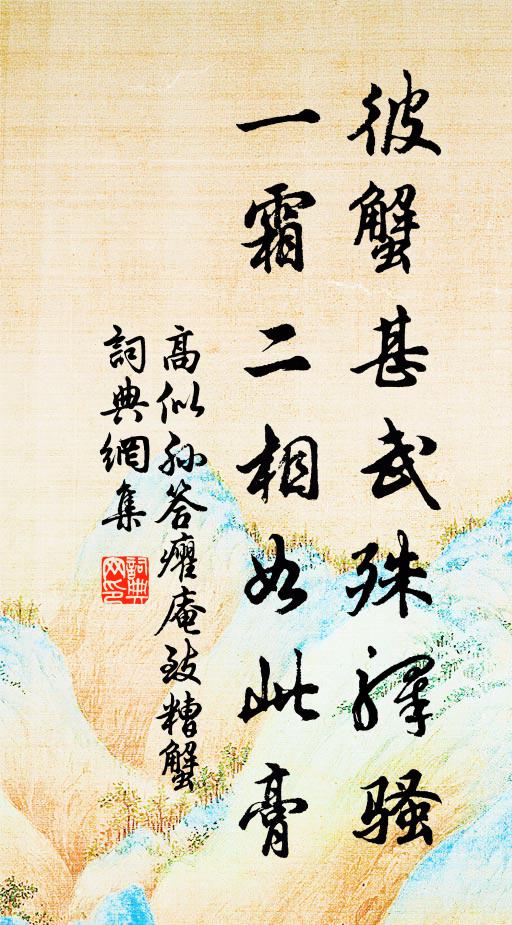 彼蟹甚武殊驛騷
一霜二相如此膏
高似孫答癯庵致糟蟹
詞典網集
詞典
网